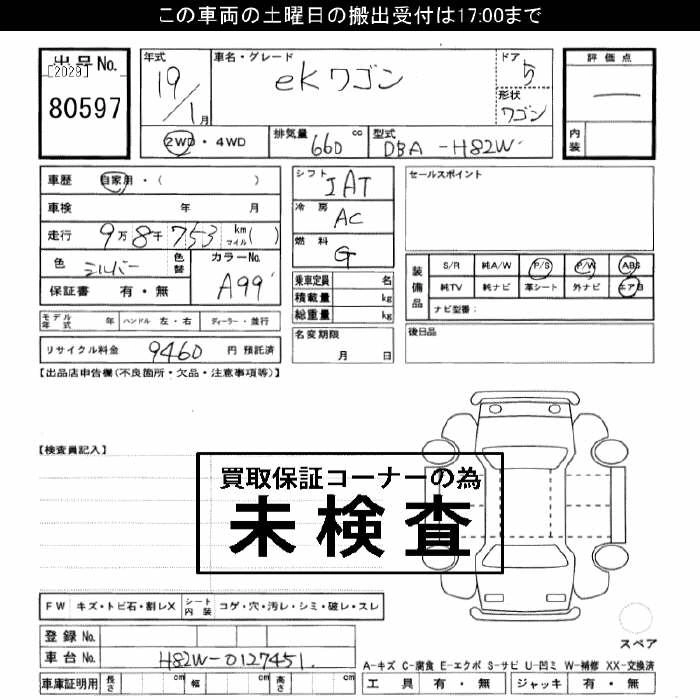 この車両の土曜日の搬出受付は17:00まで
出品No.
[2029]
80597
年式
19/1月
車名・グレード
ekワゴン
ドア
5
形状
ワゴン
評価点
内装
2WD・4WD
排気量
660 cc
型式
DBA-H82W
車歴 自家用・( )
車検 年 月
走行 9万8千753 km マイル( )
色 シルバー 色替
カラーNo. A99
保証書 有・無
シフト IAT
冷房 AC
燃料 G
乗車定員 名
積載量 kg
総重量 kg
セールスポイント
装備品
S/R 純A/W P/S P/W ABS
純TV 純ナビ 革シート 外ナビ エアB
ナビ型番:
モデル年式 年 ハンドル 左・右 ディーラー・並行
リサイクル料金 9460 円 預託済
名変期限
月 日
後日品
【出品店申告欄(不良箇所・欠品・注意事項等)】
【検査員記入】
買取保証コーナーの為
未検査
FW キズ・トビ石・割レX シート内装 コゲ・穴・汚レ・シミ・破レ・スレ
登録No.
車台No. H82W-0127451
車庫証明用 長さ cm 幅 cm 高さ cm
スペア
A-キズ C-腐食 E-エクボ S-サビ U-凹ミ W-補修 XX-交換済
工具 有・無 ジャッキ 有・無